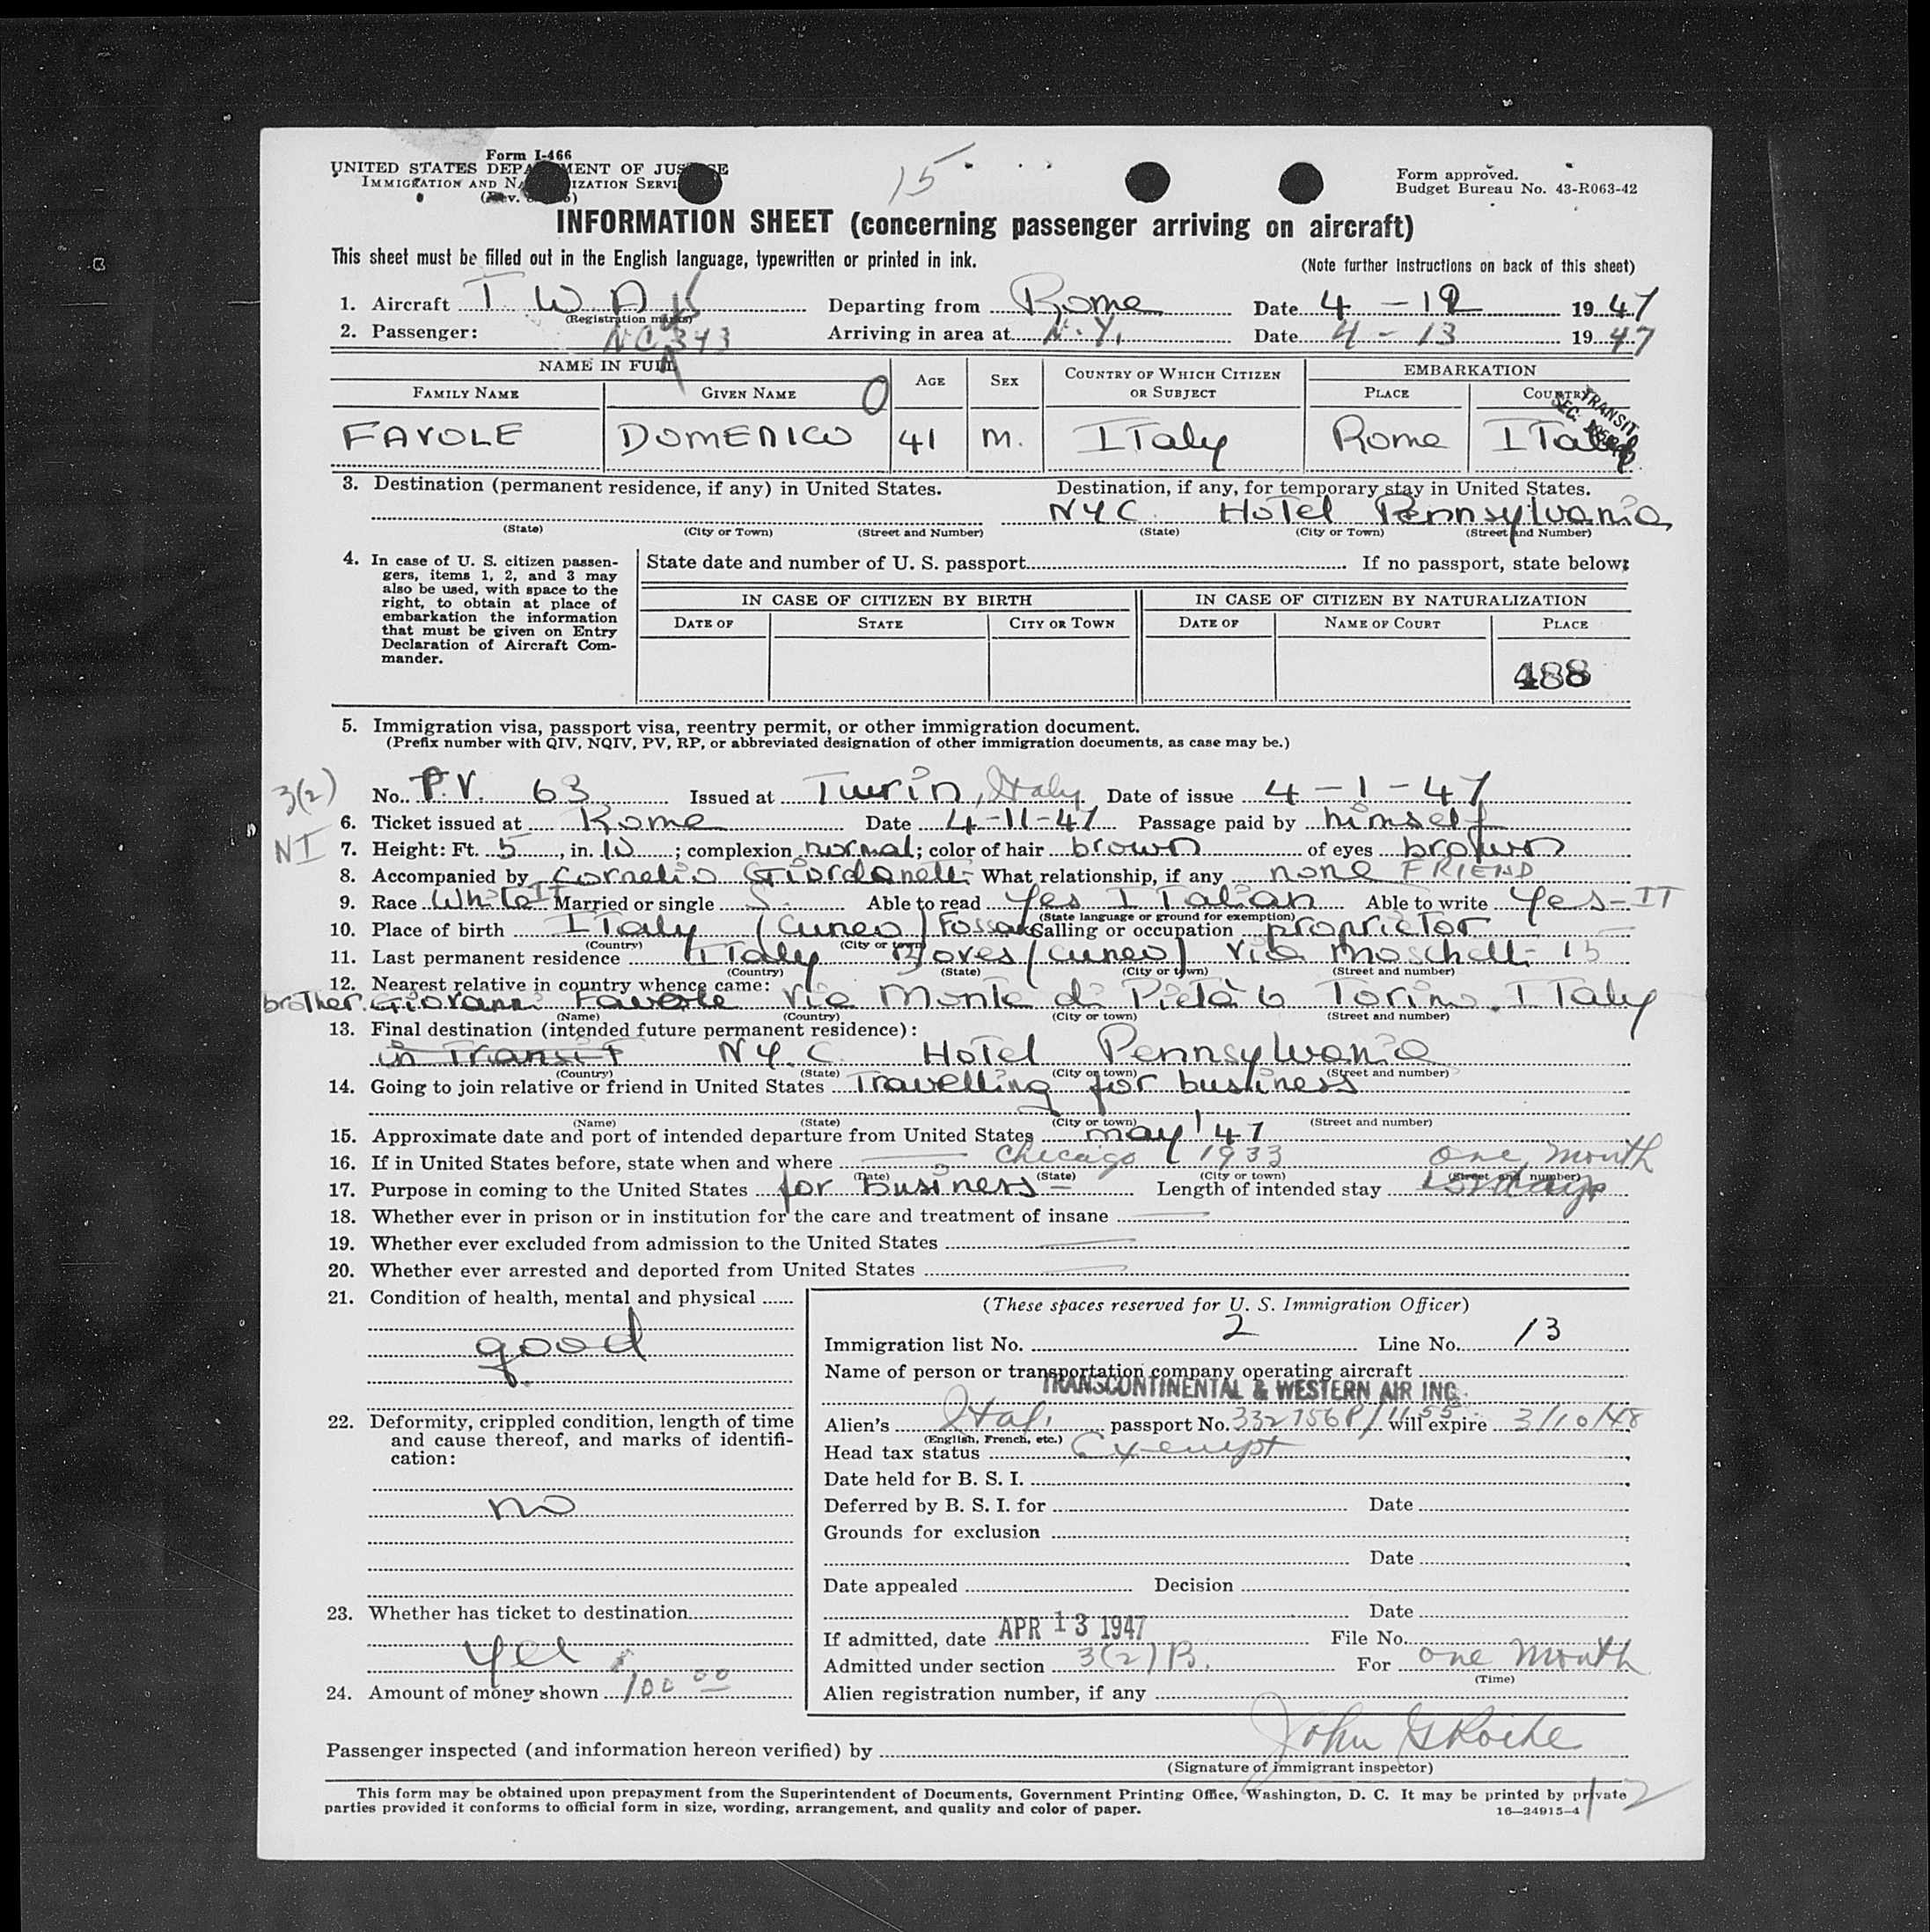 Form I-466
UNITED STATES DEPARTMENT OF JUSTICE
IMMIGRATION AND NATURALIZATION SERVICE
15
Form approved.
Budget Bureau No. 43-R063-42
INFORMATION SHEET (concerning passenger arriving on aircraft)
This sheet must be filled out in the English language, typewritten or printed in ink. (Note further instructions on back of this sheet)
1. Aircraft T W A Departing from Rome Date 4 - 12 1947
(Registration marks)
2. Passenger: NC 343 Arriving in area at N.Y. Date 4 - 13 1947
NAME IN FULL AGE SEX COUNTRY OF WHICH CITIZEN OR SUBJECT EMBARKATION
FAMILY NAME GIVEN NAME PLACE COUNTRY
TRANSIT
SEC.
FAVOLE DOMENICO 41 M. ITaly Rome ITaly
3. Destination (permanent residence, if any) in United States. Destination, if any, for temporary stay in United States.
NYC Hotel Pennsylvania
(State) (City or Town) (Street and Number) (State) (City or Town) (Street and Number)
4. In case of U. S. citizen passengers, items 1, 2, and 3 may also be used, with space to the right, to obtain at place of embarkation the information that must be given on Entry Declaration of Aircraft Commander.
State date and number of U. S. passport If no passport, state below:
IN CASE OF CITIZEN BY BIRTH IN CASE OF CITIZEN BY NATURALIZATION
DATE OF STATE CITY OR TOWN DATE OF NAME OF COURT PLACE
488
5. Immigration visa, passport visa, reentry permit, or other immigration document.
(Prefix number with QIV, NQIV, PV, RP, or abbreviated designation of other immigration documents, as case may be.)
3(2)
No. P.V. 63 Issued at Turin, Italy Date of issue 4 - 1 - 47
6. Ticket issued at Rome Date 4-11-47 Passage paid by himself
NI
7. Height: Ft. 5, in. 10; complexion normal; color of hair brown of eyes brown
8. Accompanied by Cornelio Giordanetti What relationship, if any none FRIEND
9. Race White IT Married or single S. Able to read Yes ITalian Able to write Yes-IT
(State language or ground for exemption)
10. Place of birth ITaly (Cuneo) Calling or occupation proprietor
(Country) (City or town)
11. Last permanent residence ITaly Boves (Cuneo) Via Moschetti 15
(Country) (State) (City or town) (Street and number)
12. Nearest relative in country whence came:
brother. Giovanni Favole Via Monte di Pietà 6 Torino. ITaly
(Name) (Country) (City or town) (Street and number)
13. Final destination (intended future permanent residence):
in Transit N.Y.C. Hotel Pennsylvania
(Country) (State) (City or town) (Street and number)
14. Going to join relative or friend in United States Travelling for business
(Name) (State) (City or town) (Street and number)
15. Approximate date and port of intended departure from United States may '47
16. If in United States before, state when and where Chicago 1933 One month
(Date) (State) (City or town) (Street and number)
17. Purpose in coming to the United States for Business Length of intended stay days
18. Whether ever in prison or in institution for the care and treatment of insane
19. Whether ever excluded from admission to the United States
20. Whether ever arrested and deported from United States
21. Condition of health, mental and physical
good
22. Deformity, crippled condition, length of time and cause thereof, and marks of identification:
no
23. Whether has ticket to destination
yes
24. Amount of money shown 100 00
(These spaces reserved for U. S. Immigration Officer)
Immigration list No. 2 Line No. 13
Name of person or transportation company operating aircraft
TRANSCONTINENTAL & WESTERN AIR INC.
Alien's Ital. passport No. 332756P/1155 will expire 3/10/48
(English, French, etc.)
Head tax status Exempt
Date held for B. S. I.
Deferred by B. S. I. for Date
Grounds for exclusion
Date
Date appealed Decision
Date
If admitted, date APR 13 1947 File No.
Admitted under section 3(2)B. For One Month
(Time)
Alien registration number, if any
Passenger inspected (and information hereon verified) by John G Roche
(Signature of immigrant inspector)
This form may be obtained upon prepayment from the Superintendent of Documents, Government Printing Office, Washington, D. C. It may be printed by private
parties provided it conforms to official form in size, wording, arrangement, and quality and color of paper. 16—24915-4